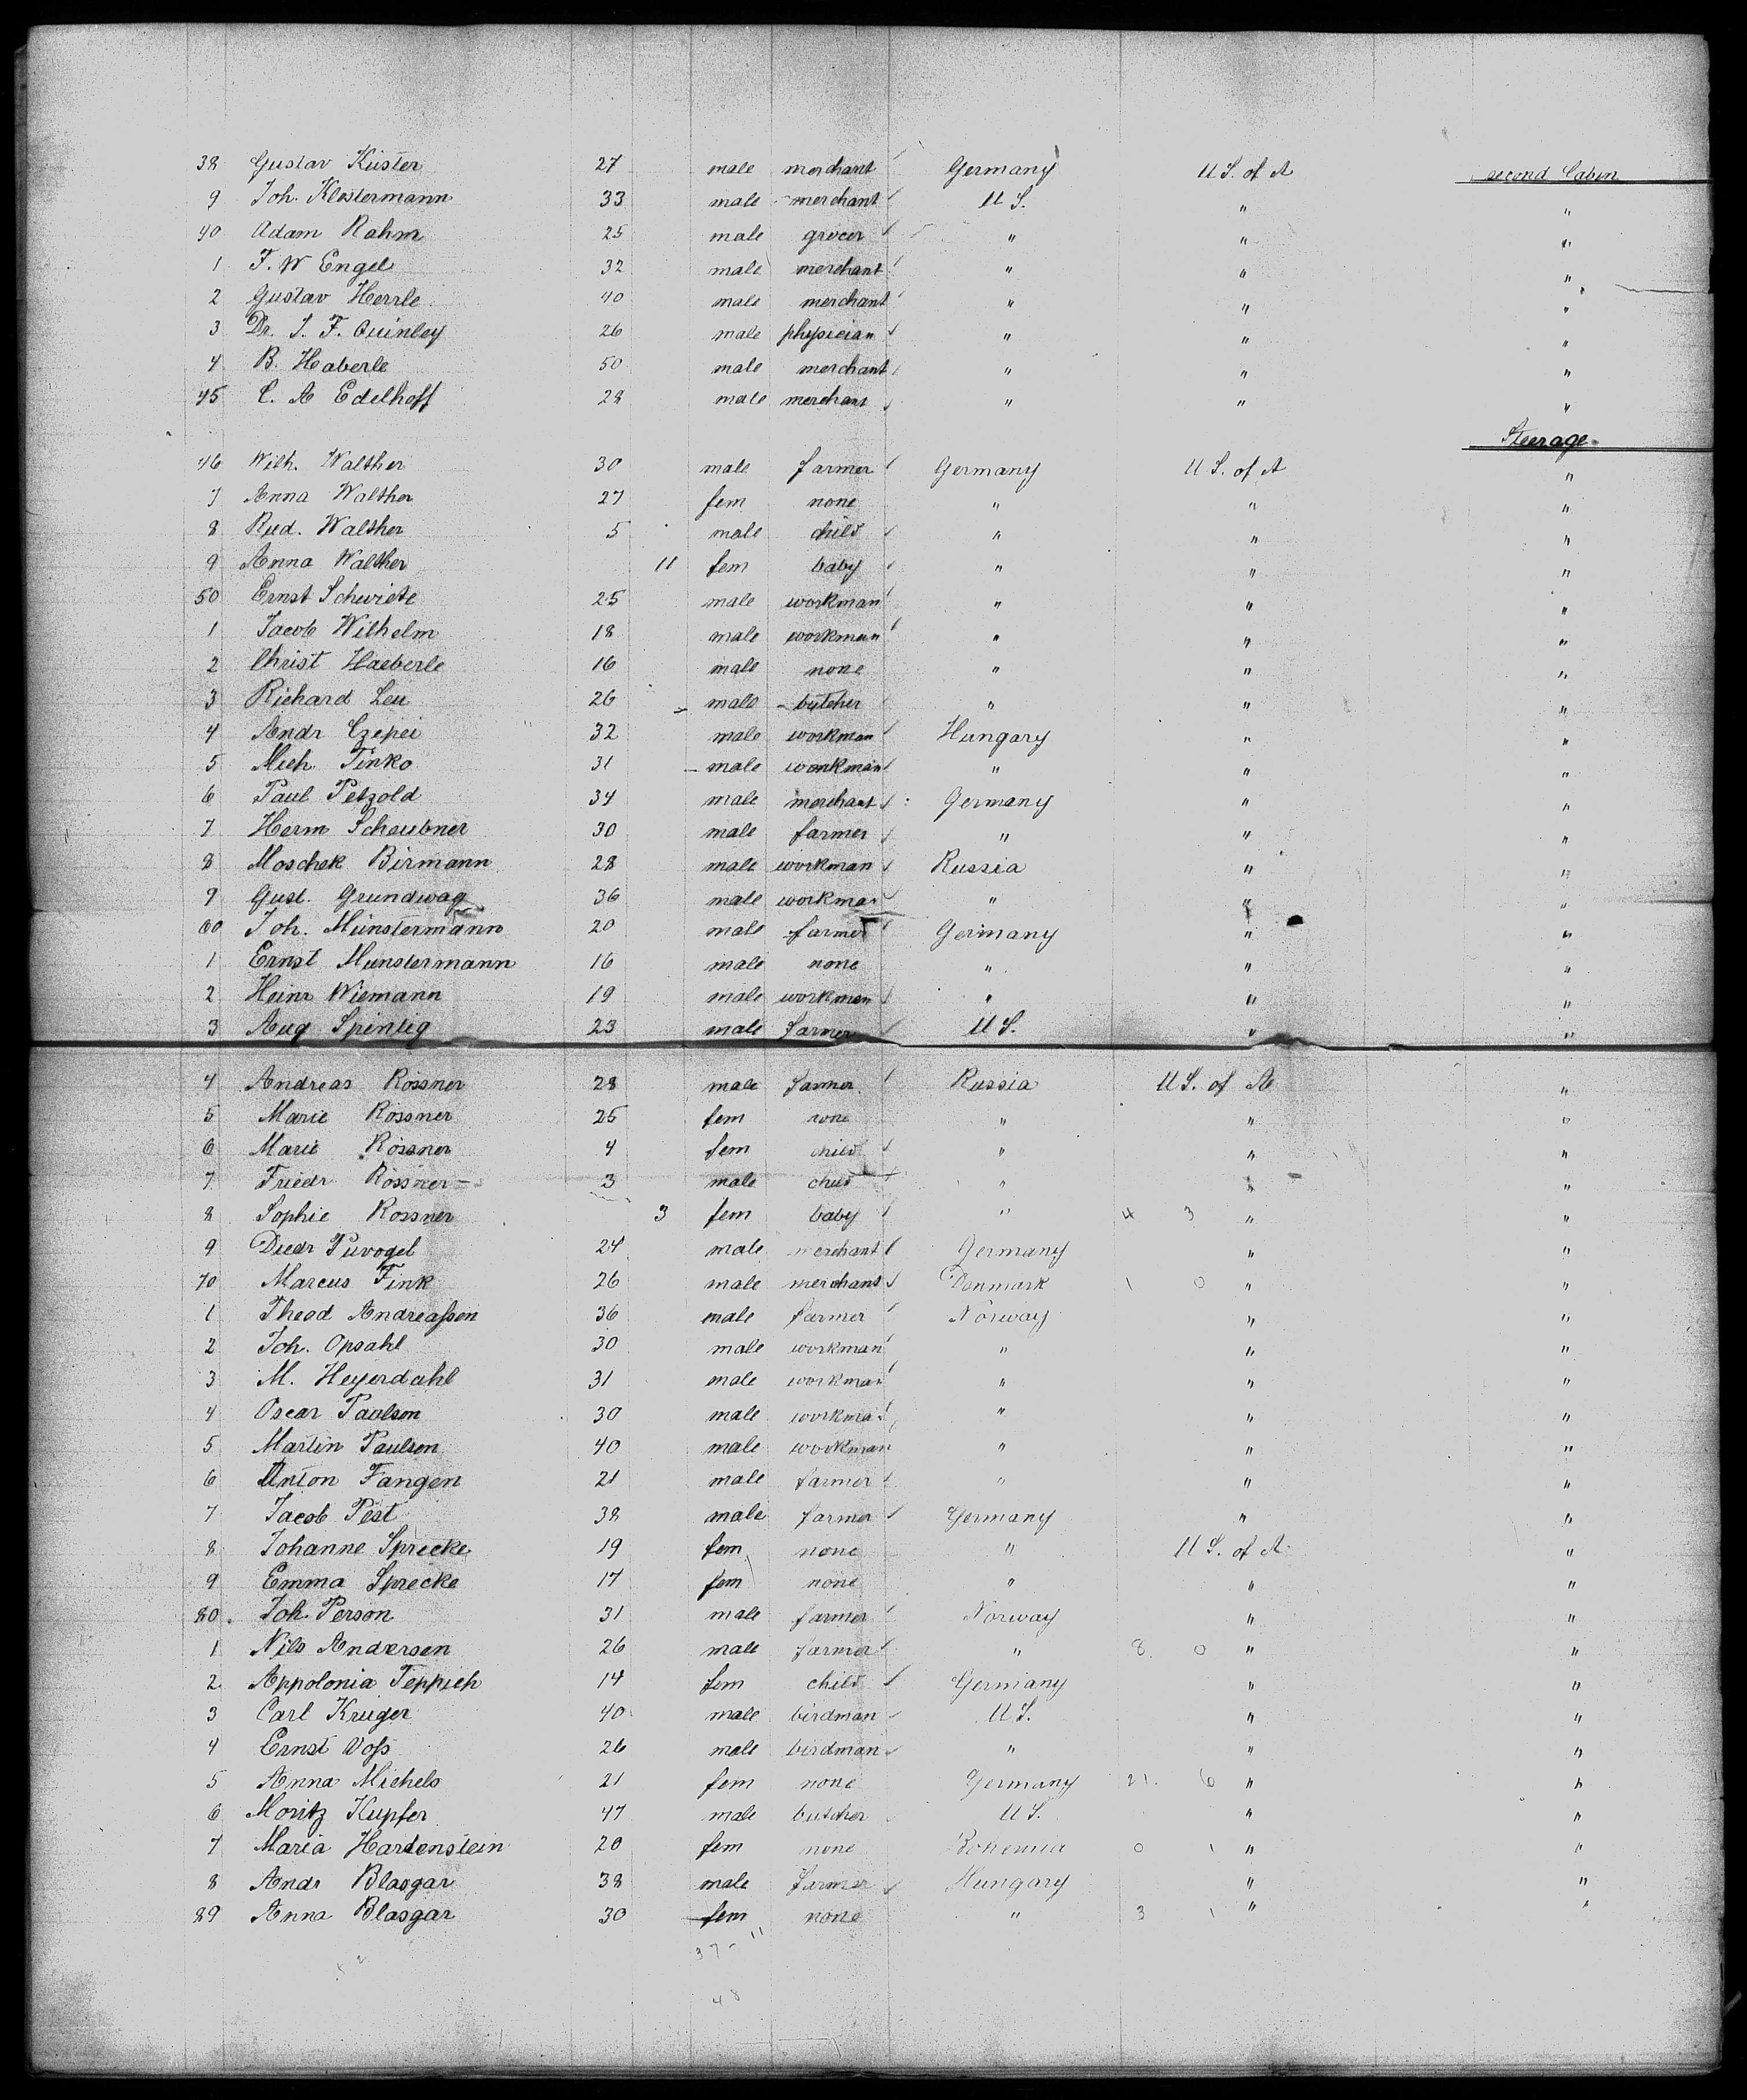 38 Gustav Küster 27 male merchant Germany U S. of A second Cabin
9 Joh. Klostermann 33 male merchant U S. " "
40 Adam Rahm 25 male grocer " " "
1 F. W Engel 32 male merchant " " "
2 Gustav Herrle 40 male merchant " " "
3 Dr. J. F. Quinley 26 male physician " " "
4 B. Haberle 50 male merchant " " "
45 C. A Edelhoff 28 male merchant " " "
Steerage
46 Wilh. Walther 30 male farmer Germany U S. of A "
7 Anna Walther 27 fem none " " "
8 Rud. Walther 5 male child " " "
9 Anna Walther 11 fem baby " " "
50 Ernst Schwiete 25 male workman " " "
1 Jacob Wilhelm 18 male workman " " "
2 Christ Haeberle 16 male none " " "
3 Richard Leu 26 male butcher " " "
4 Andr Czepei 32 male workman Hungary " "
5 Mich Tinko 31 male workman " " "
6 Paul Petzold 34 male merchant Germany " "
7 Herm Scheubner 30 male farmer " " "
8 Moschek Birmann 28 male workman Russia " "
9 Gust. Grundwag 36 male workman " " "
60 Joh. Münstermann 20 male farmer Germany " "
1 Ernst Munstermann 16 male none " " "
2 Heinr Wiemann 19 male workman " " "
3 Aug Spintig 23 male farmer U S. " "
4 Andreas Rössner 28 male farmer Russia U S. of A "
5 Marie Rössner 25 fem none " " "
6 Marie Rössner 4 fem child " " "
7 Friedr Rössner 3 male child " " "
8 Sophie Rossner 3 fem baby " 4 3 " "
9 Diedr Puvogel 24 male merchant Germany " "
70 Marcus Fink 26 male merchant Denmark 1 0 " "
1 Theod Andreassen 36 male farmer Norway " "
2 Joh. Opsahl 30 male workman " " "
3 M. Heyerdahl 31 male workman " " "
4 Oscar Paulson 30 male workman " " "
5 Martin Paulson 40 male workman " " "
6 Anton Fangen 21 male farmer " " "
7 Jacob Pest 38 male farmer Germany " "
8 Johanne Sprecke 19 fem none " U S. of A "
9 Emma Sprecke 17 fem none " " "
80. Joh. Person 31 male farmer Norway " "
1 Nils Andersen 26 male farmer " 8. 0 " "
2 Appolonia Teppich 14 fem child Germany " "
3 Carl Kruger 40 male birdman U S. " "
4 Ernst Voss 26 male birdman " " "
5 Anna Michels 21 fem none Germany 21. 6 " "
6 Moritz Kupfer 47 male butcher U S. " "
7 Maria Hartenstein 20 fem none Bohemia 0 1 " "
8 Andr Blasgar 38 male farmer Hungary " "
89 Anna Blasgar 30 fem none " 3 1 " "
37 - 11
48